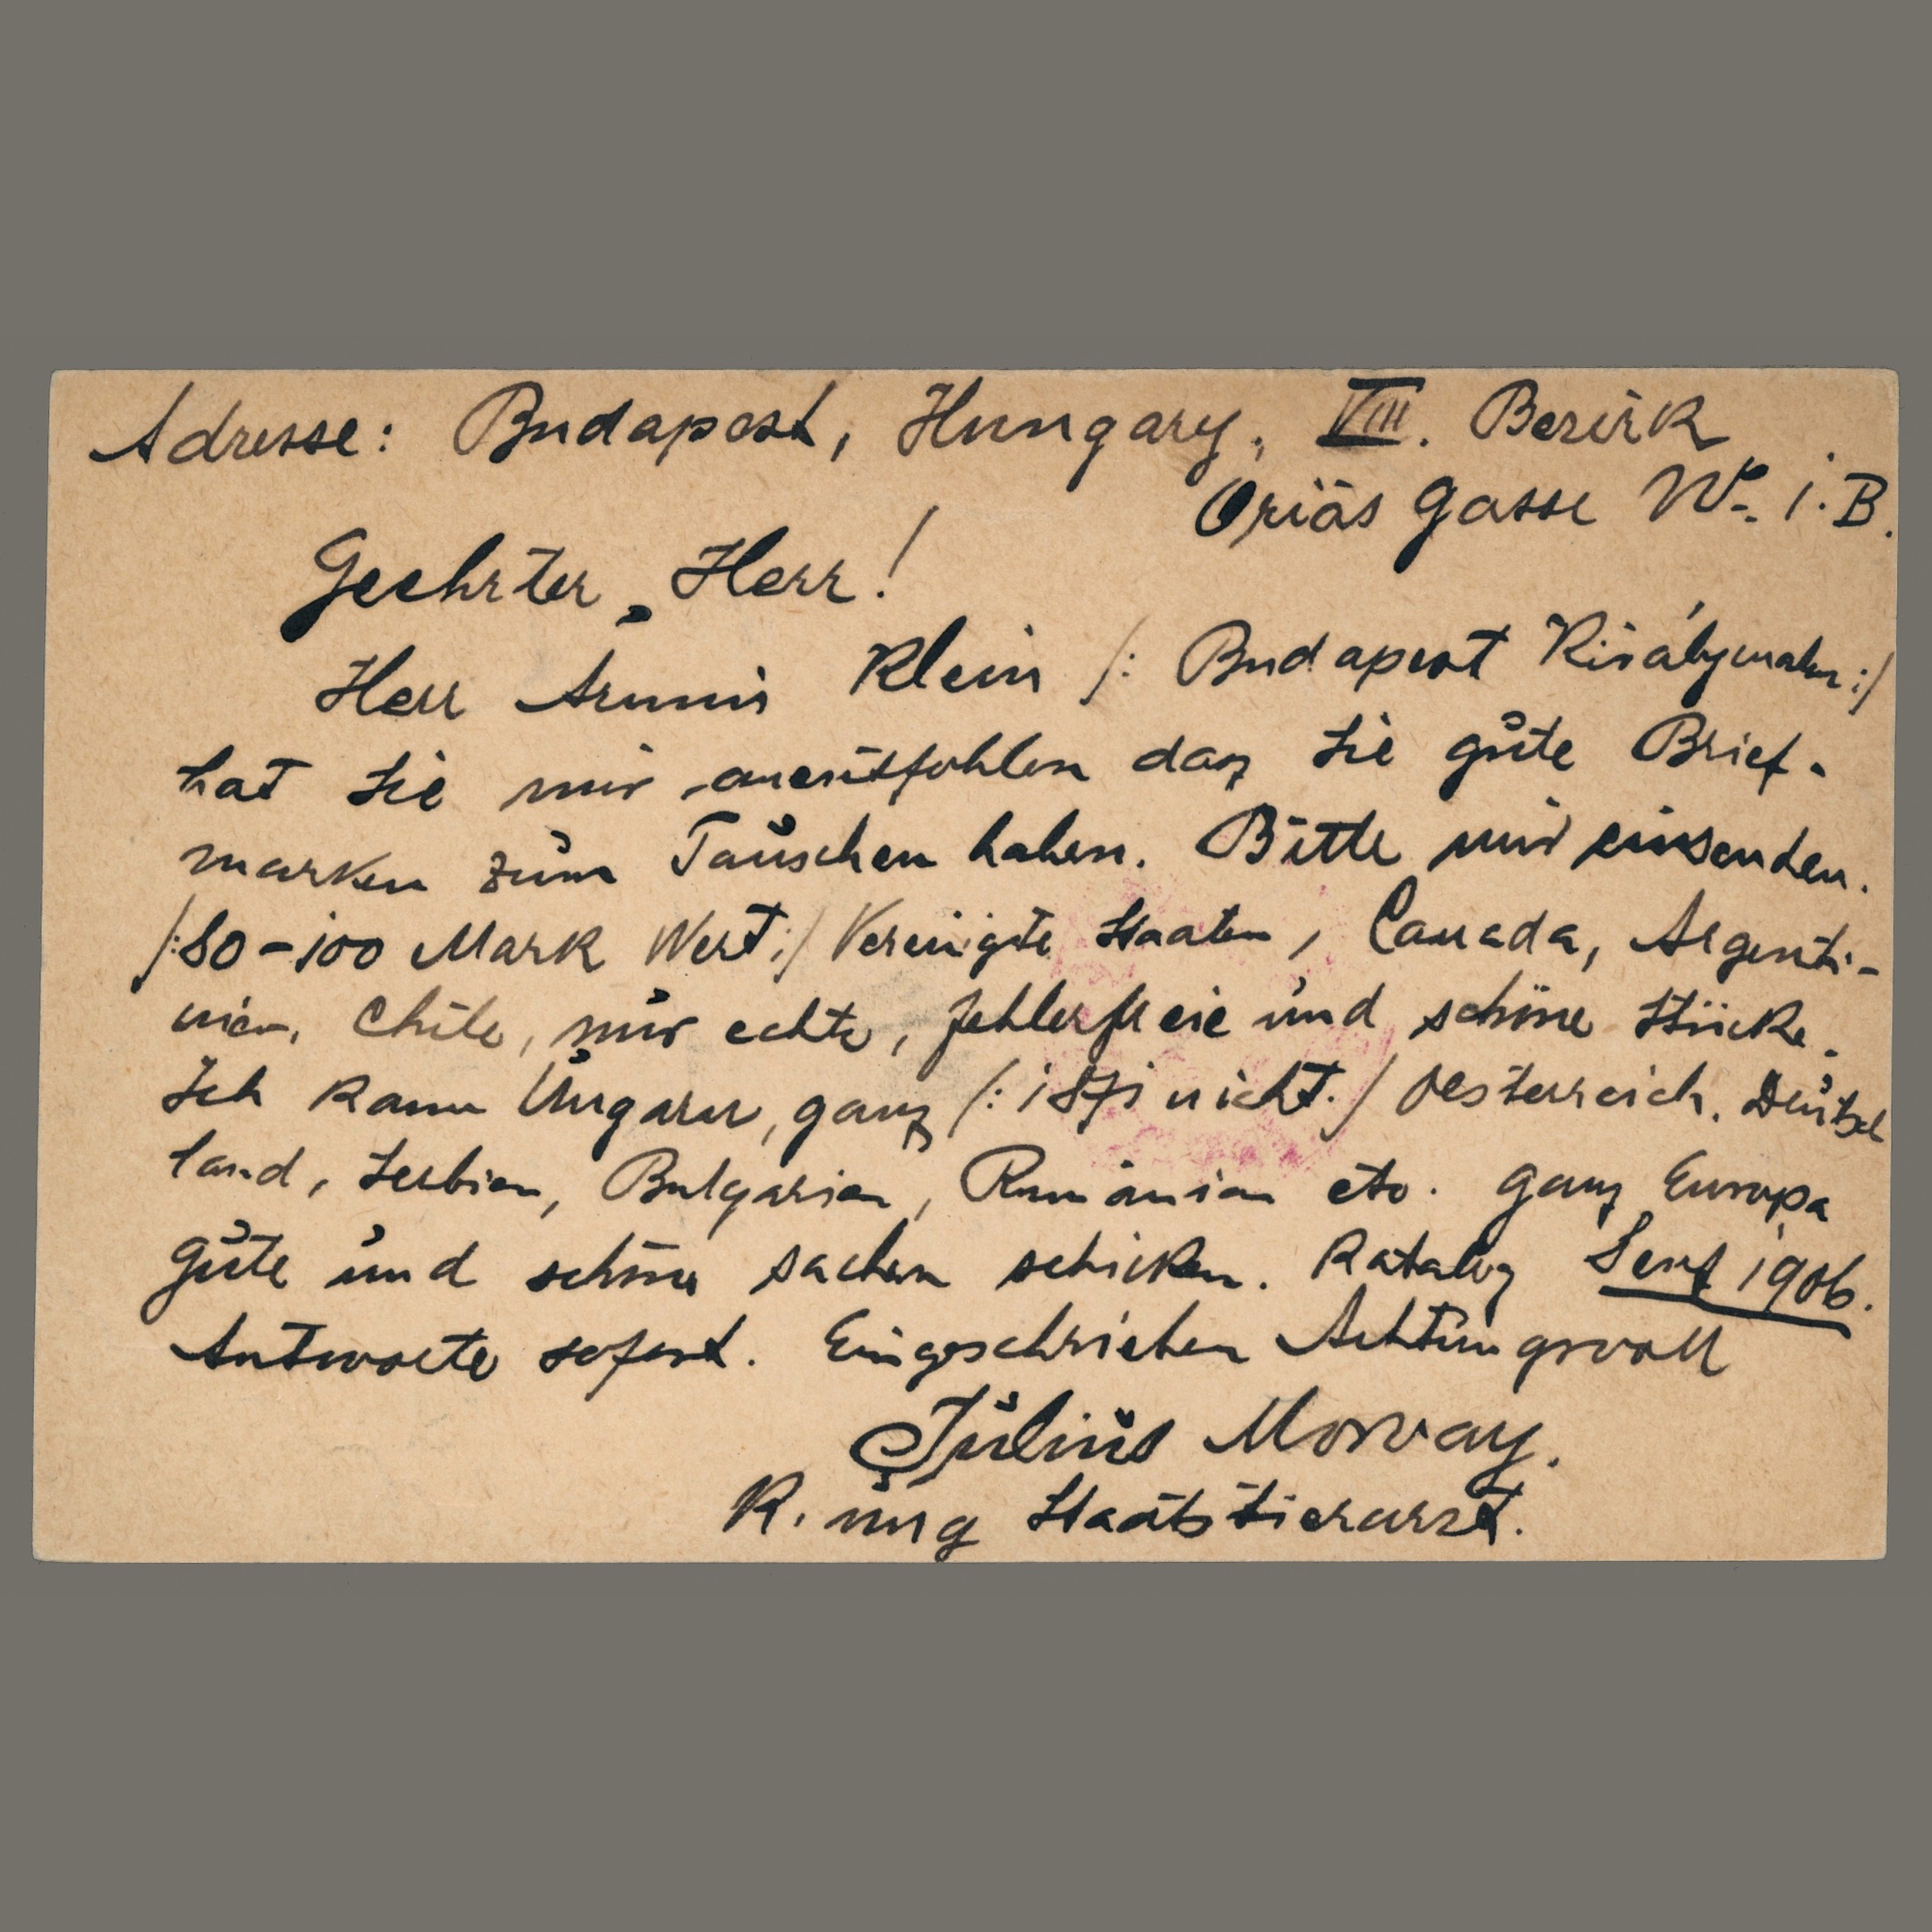 Adresse: Budapest, Hungary, VIII. Bezirk
Óriás Gasse No. 1. B.
Geehrter Herr!
Herr Armin Klein /: Budapest :/
hat Sie mir daz Sie gute Brief-
marken zum Tauschen haben. Bitte mir einsenden.
/:80-100 Mark Wert:/ Vereinigte Staaten, Canada, Argenti-
nien, Chile, nur echte, fehlerfreie und schöne Stücke.
Ich kann Ungarn, ganz /: 1871 nicht :/ Oesterreich, Deutsch
land, Serbien, Bulgarien, Rumänien etc. ganz Europa
gute und schöne sachen schicken. Katalog Senf 1906.
Antworte sofort. Eingeschrieben Achtungsvoll
Julius Morvay.
K. ung Staatstierarzt.